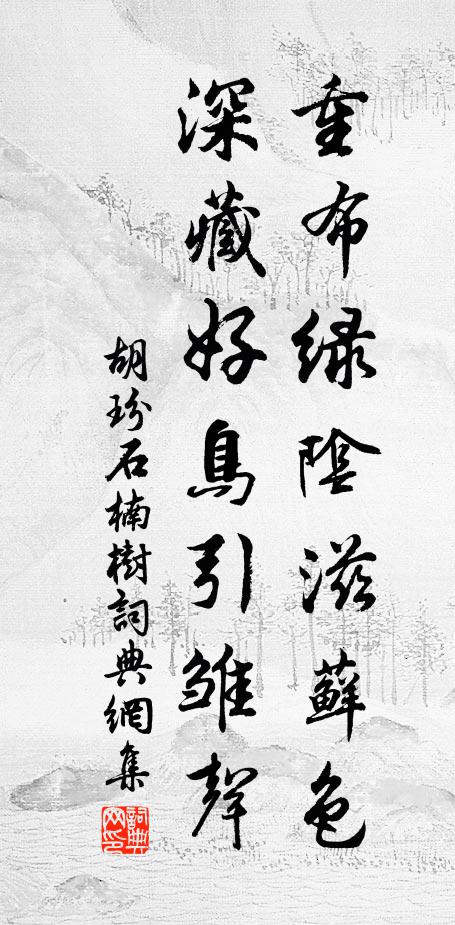 重布綠陰滋蘚色
深藏好鳥引雛聲
胡玢石楠樹詞典網集
詞典網印